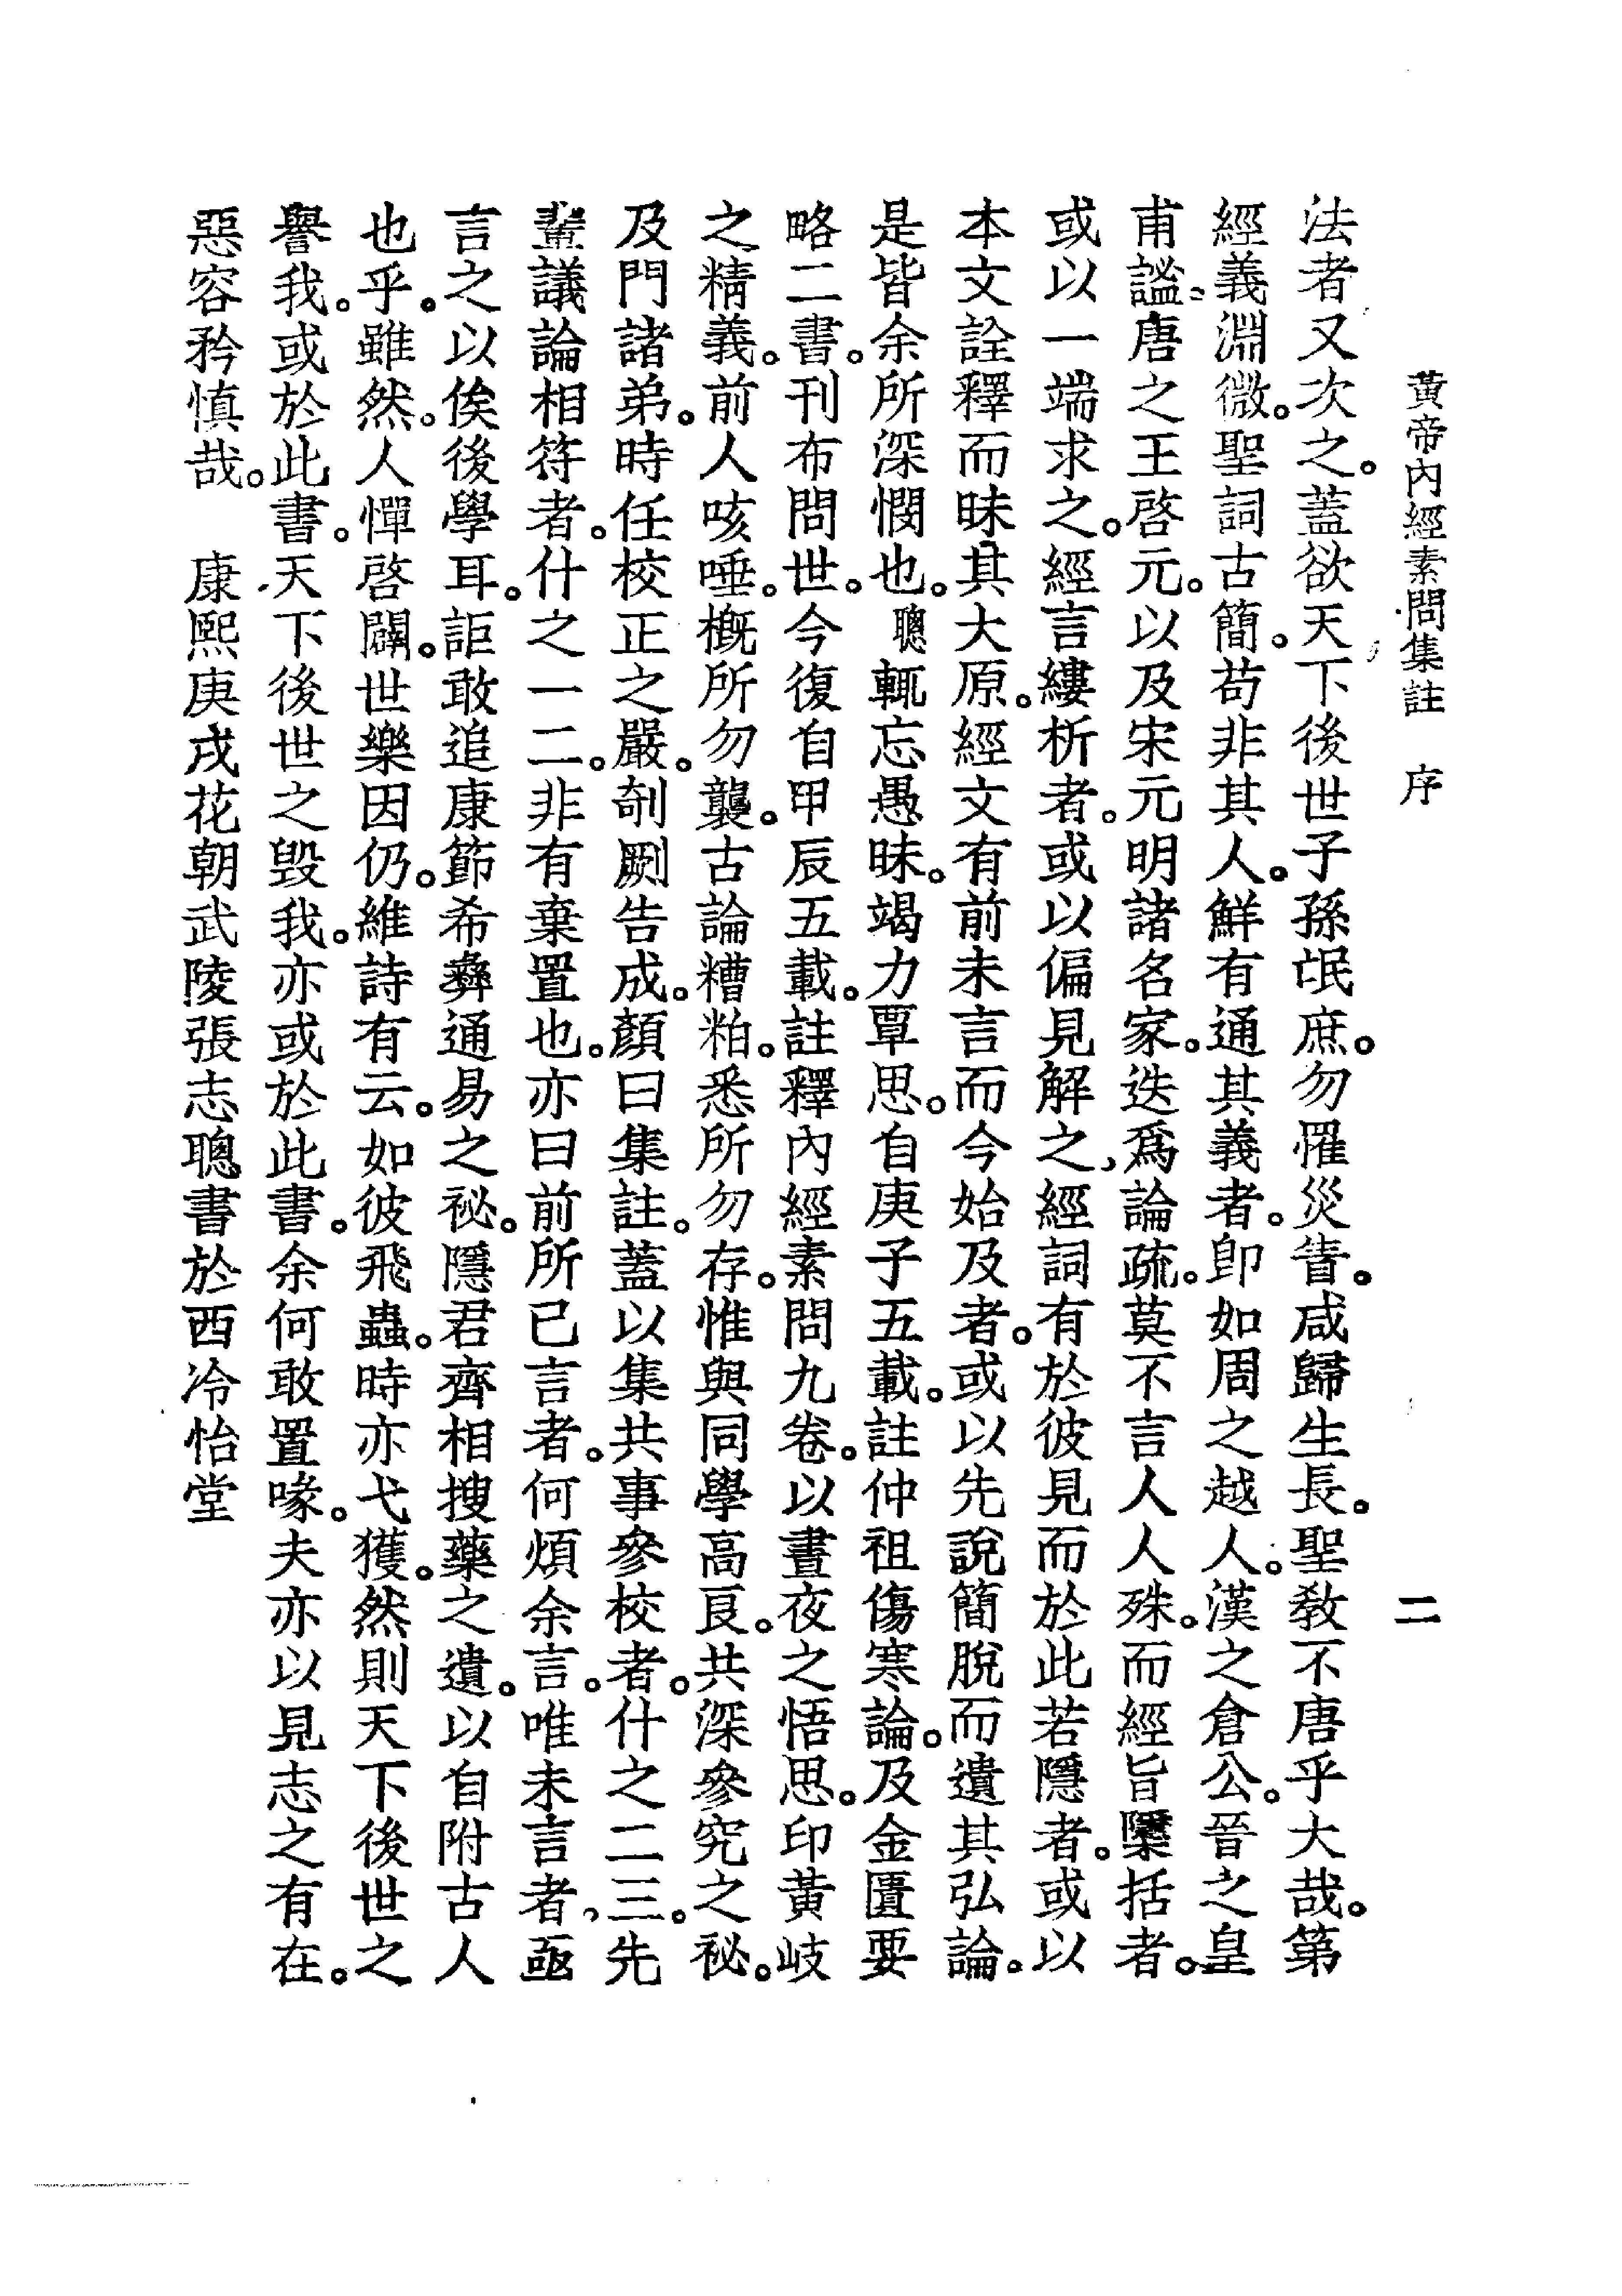 黃帝內經素問集註　序　二
法者又次之。蓋欲天下後世子孫氓庶。勿罹災眚。咸歸生長。聖敎不唐乎大哉。第
經義淵微。聖詞古簡。苟非其人。鮮有通其義者。卽如周之越人。漢之倉公。晉之皇
甫謐。唐之王啓元。以及宋元明諸名家。迭爲論疏。莫不言人人殊。而經旨隱括者。
或以一端求之。經言縷析者。或以偏見解之、經詞有於彼見而於此若隱者。或以
本文詮釋而昧其大原。經文有前未言而今始及者。或以先說簡脫而遺其弘論。
是皆余所深憫也。聰輒忘愚昧。竭力覃思。自庚子五載。註仲祖傷寒論。及金匱要
略二書。刊布問世。今復自甲辰五載。註釋內經素問九卷。以晝夜之悟思。印黃岐
之精義。前人咳唾。槪所勿襲。古論糟粕。悉所勿存。惟與同學高良。共深參究之祕。
及門諸弟。時任校正之嚴。剞劂告成。顏曰集註。蓋以集共事參校者。什之二三。先
輩議論相符者。什之一二。非有棄置也。亦曰前所已言者。何煩余言。唯未言者、亟
言之以俟後學耳。詎敢追康節希彝通易之祕。隱君齊相搜藥之遺。以自附古人
也乎。雖然。人憚啓闢。世樂因仍。維詩有云。如彼飛蟲。時亦弋獲。然則天下後世之
譽我。或於此書。天下後世之毀我。亦或於此書。余何敢置喙。夫亦以見志之有在。
惡容矜愼哉。　康熙庚戌花朝武陵張志聰書於西冷怡堂